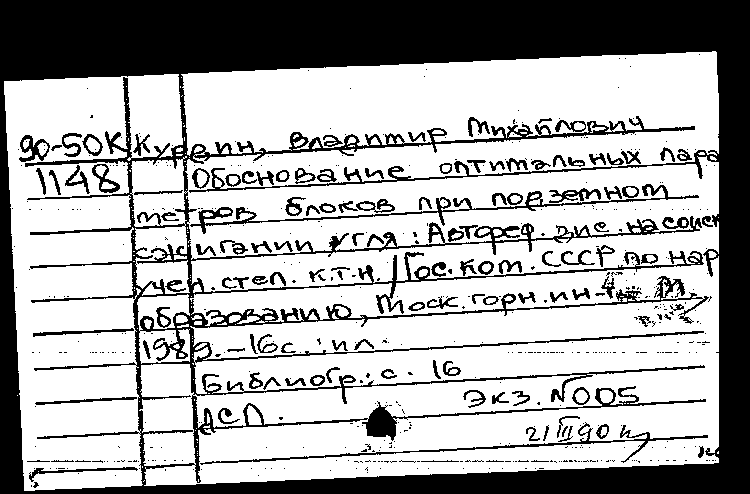 90-50К Курдин, Владимир Михайлович
1148 Обоснование оптимальных пара
метров блоков при подземном
сжигании угля : Автореф. дис. на соиск
учен. степ. к.т.н. / Гос. ком. СССР по нар
образованию, Моск. горн. ин-т М.
1989. - 16 с. : ил.
Библиогр.: с. 16
ДСП. Экз. N 005
21 III 90